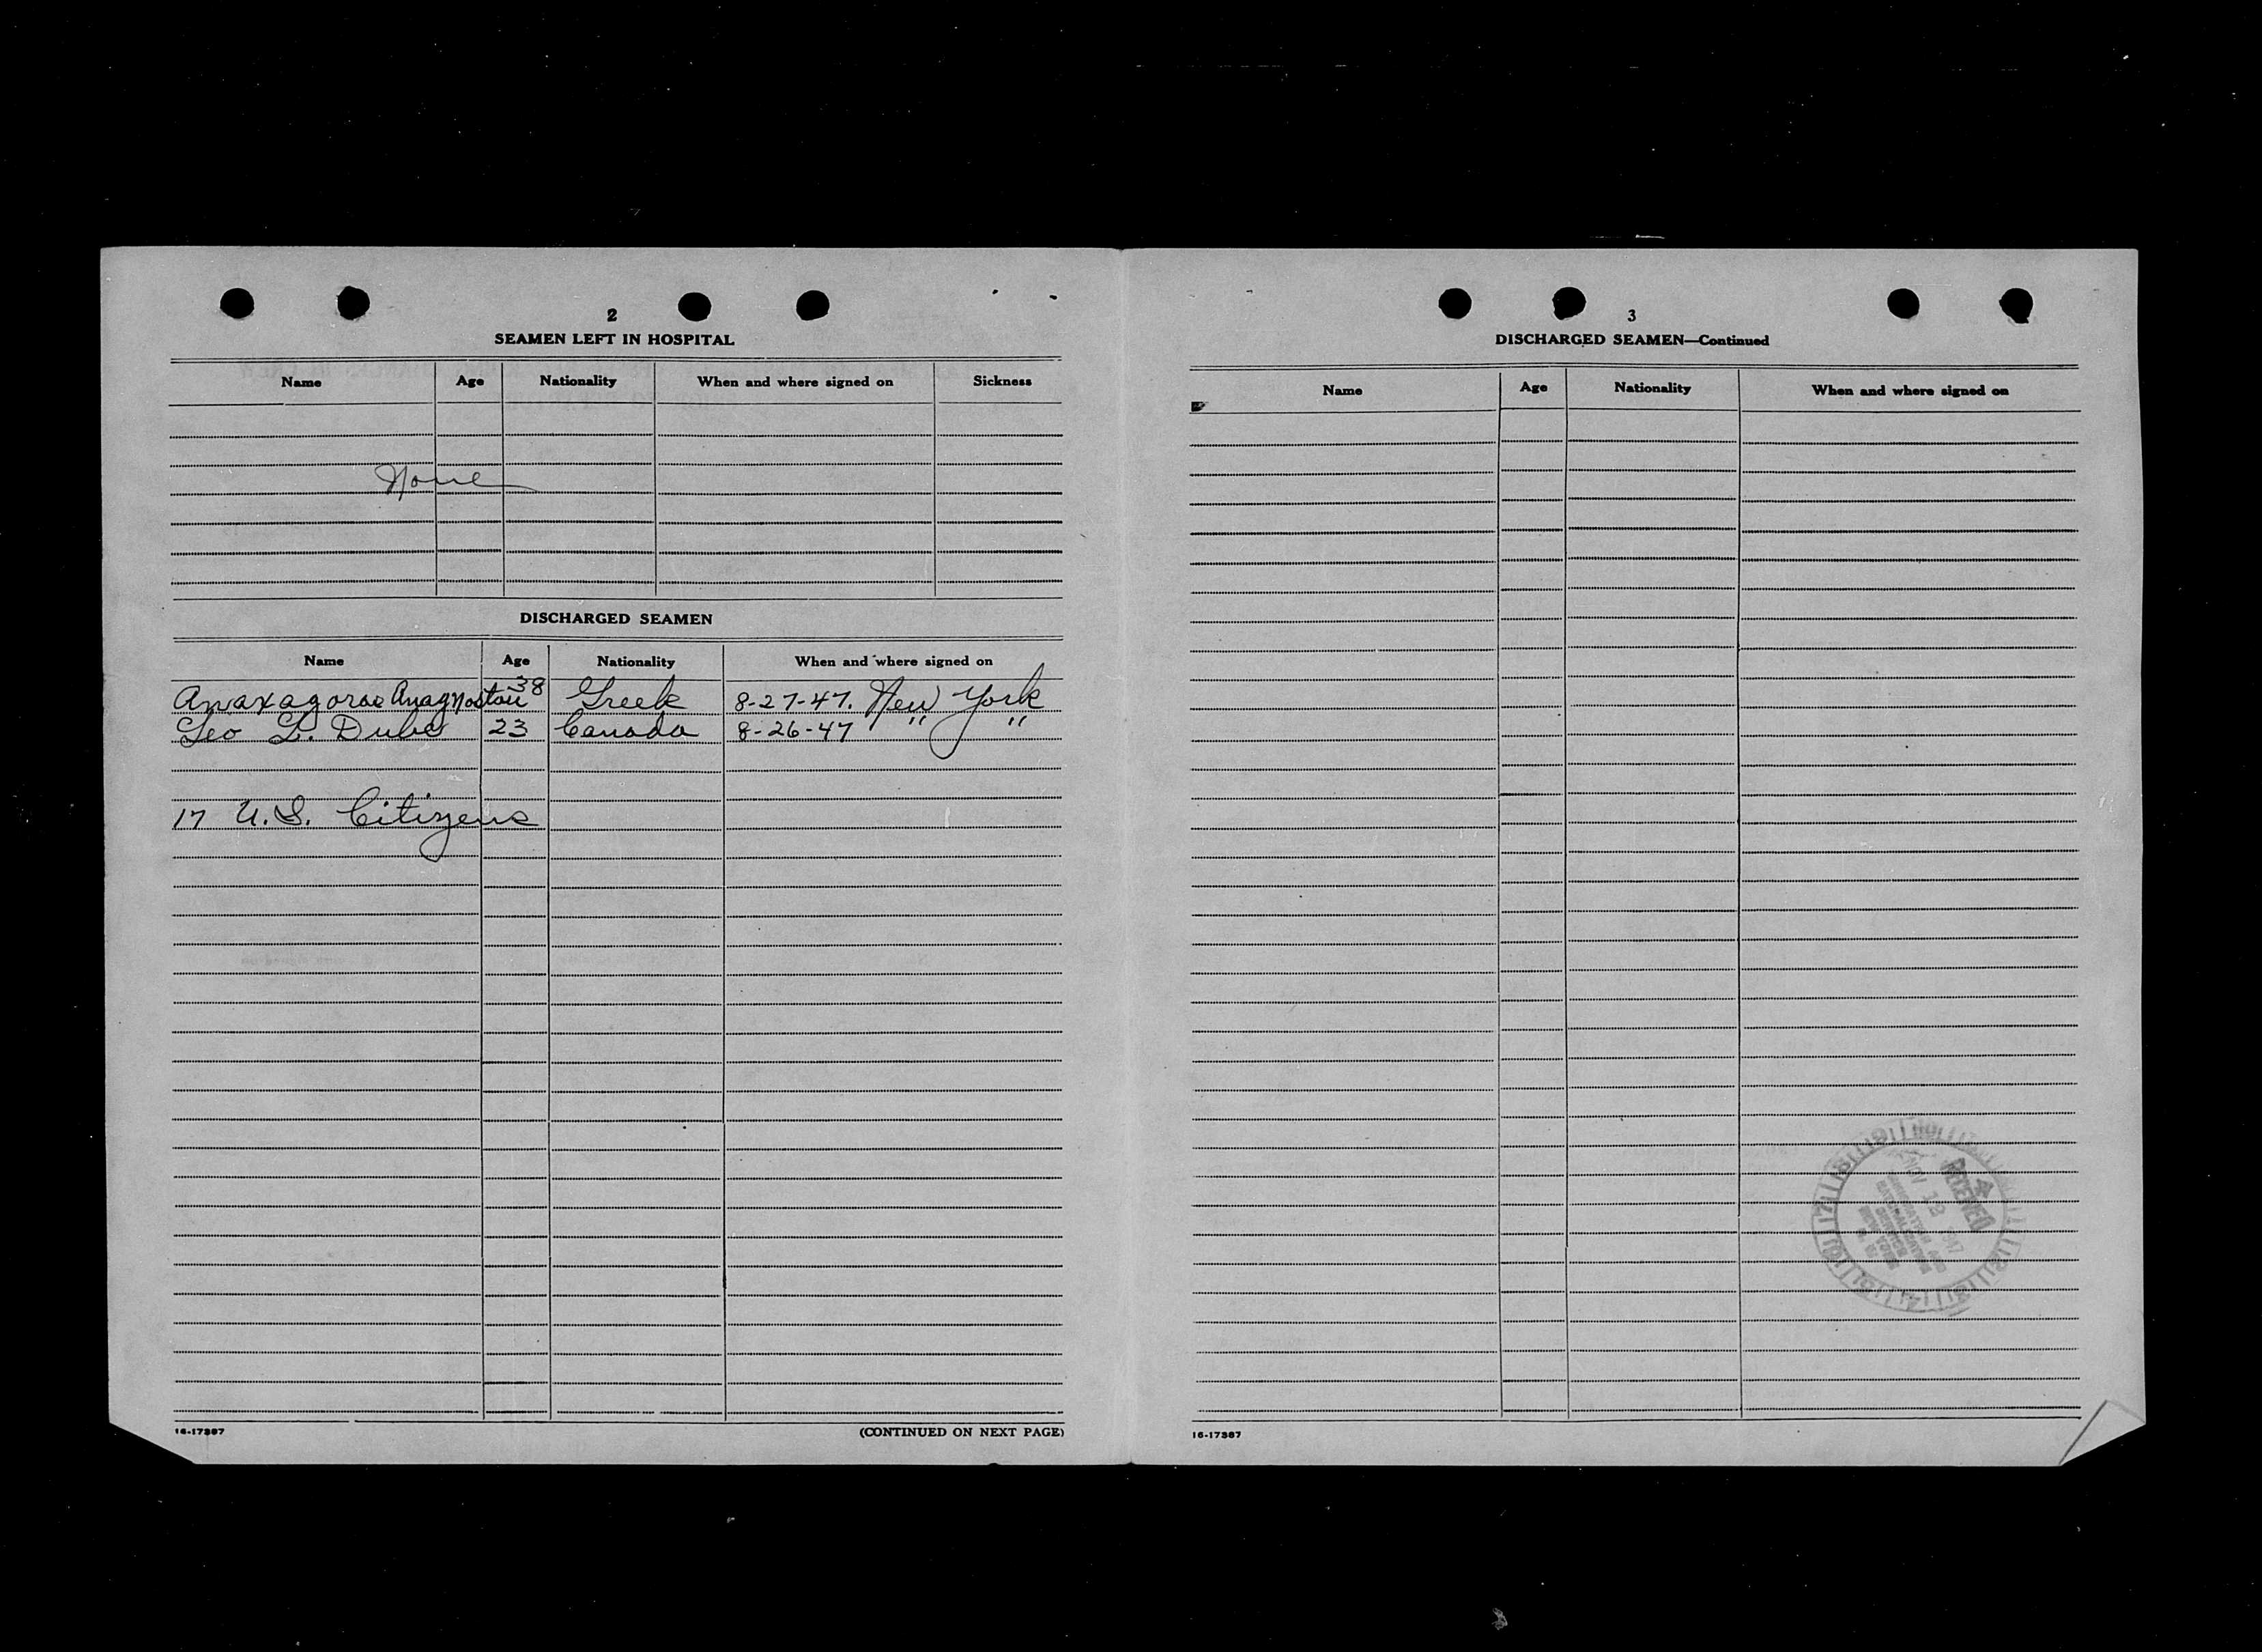 2
SEAMEN LEFT IN HOSPITAL
Name Age Nationality When and where signed on Sickness
None
DISCHARGED SEAMEN
Name Age Nationality When and where signed on
Anaxagoras Anagnostou 38 Greek 8-27-47. New York
Leo L. Dube 23 Canada 8-26-47 " "
17 U.S. Citizens
16-17387
(CONTINUED ON NEXT PAGE)
3
DISCHARGED SEAMEN—Continued
Name Age Nationality When and where signed on
RECEIVED
NOV 12 1947
16-17387